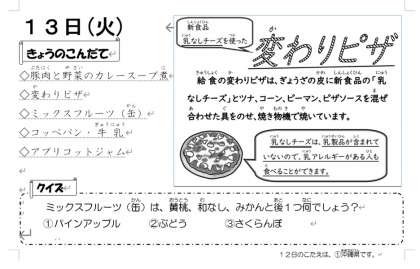 13日(火)
きょうのこんだて
◇豚肉と野菜のカレースープ煮
◇変わりピザ
◇ミックスフルーツ(缶)
◇コッペパン・牛乳
◇アプリコットジャム
新食品
乳なしチーズを使った
変わりピザ
給食の変わりピザは、ぎょうざの皮に新食品の「乳
なしチーズ」とツナ、コーン、ピーマン、ピザソースを混ぜ
合わせた具をのせ、焼き物機で焼いています。
乳なしチーズは、乳製品が含まれて
いないので、乳アレルギーがある人も
食べることができます。
クイズ
ミックスフルーツ(缶)は、黄桃、和なし、みかんと後1つ何でしょう?
①パインアップル ②ぶどう ③さくらんぼ
12日のこたえは、①沖縄県です。